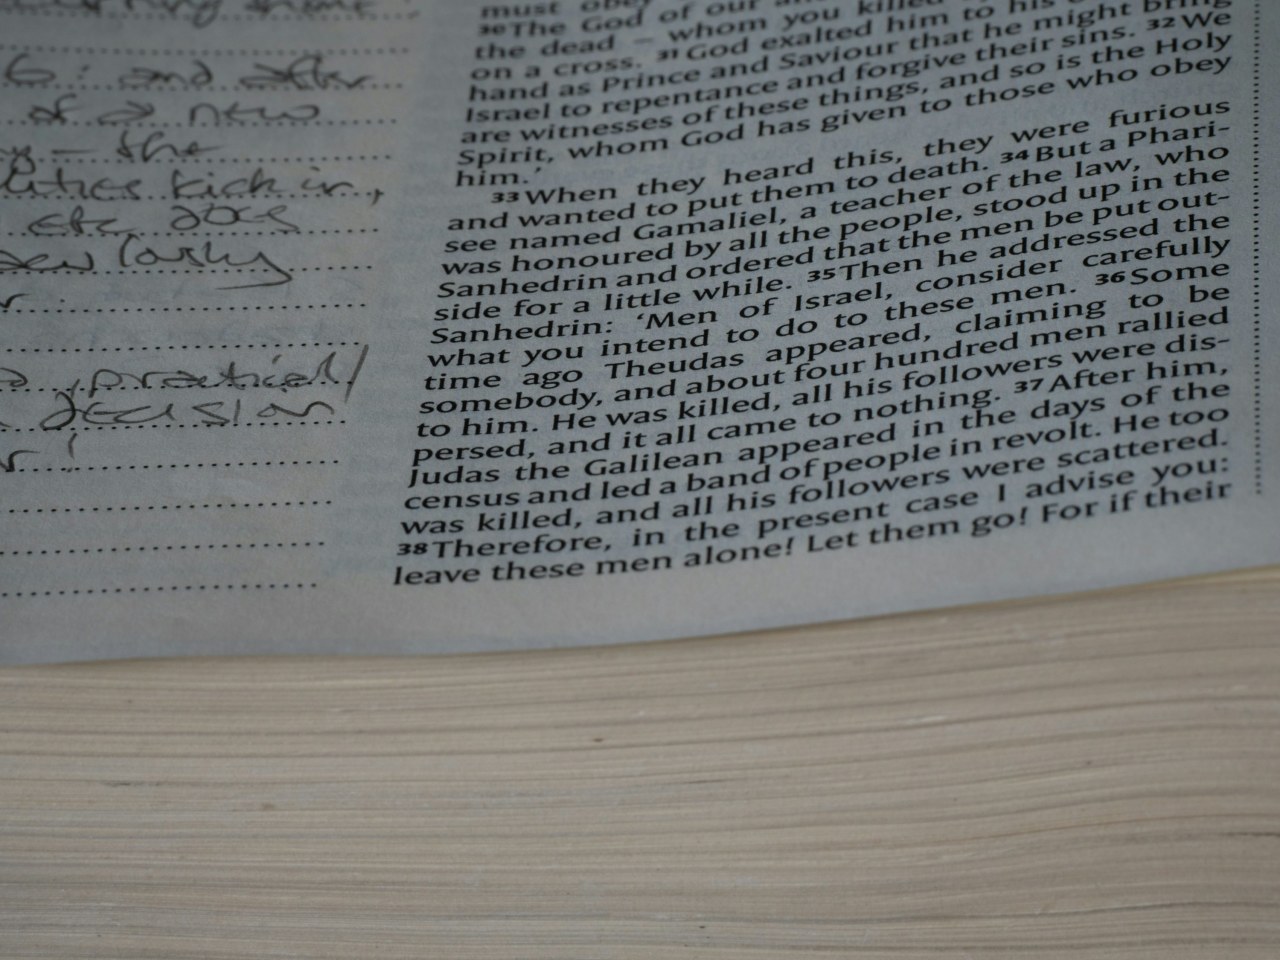 6: and after
of a new
– the
kick in,
etc does
practical/
decision
must obey
30 The God of our
the dead – whom you killed
on a cross. 31 God exalted him to his
hand as Prince and Saviour that he might bring
Israel to repentance and forgive their sins. 32 We
are witnesses of these things, and so is the Holy
Spirit, whom God has given to those who obey
him.'
33 When they heard this, they were furious
and wanted to put them to death. 34 But a Phari-
see named Gamaliel, a teacher of the law, who
was honoured by all the people, stood up in the
Sanhedrin and ordered that the men be put out-
side for a little while. 35 Then he addressed the
Sanhedrin: 'Men of Israel, consider carefully
what you intend to do to these men. 36 Some
time ago Theudas appeared, claiming to be
somebody, and about four hundred men rallied
to him. He was killed, all his followers were dis-
persed, and it all came to nothing. 37 After him,
Judas the Galilean appeared in the days of the
census and led a band of people in revolt. He too
was killed, and all his followers were scattered.
38 Therefore, in the present case I advise you:
leave these men alone! Let them go! For if their